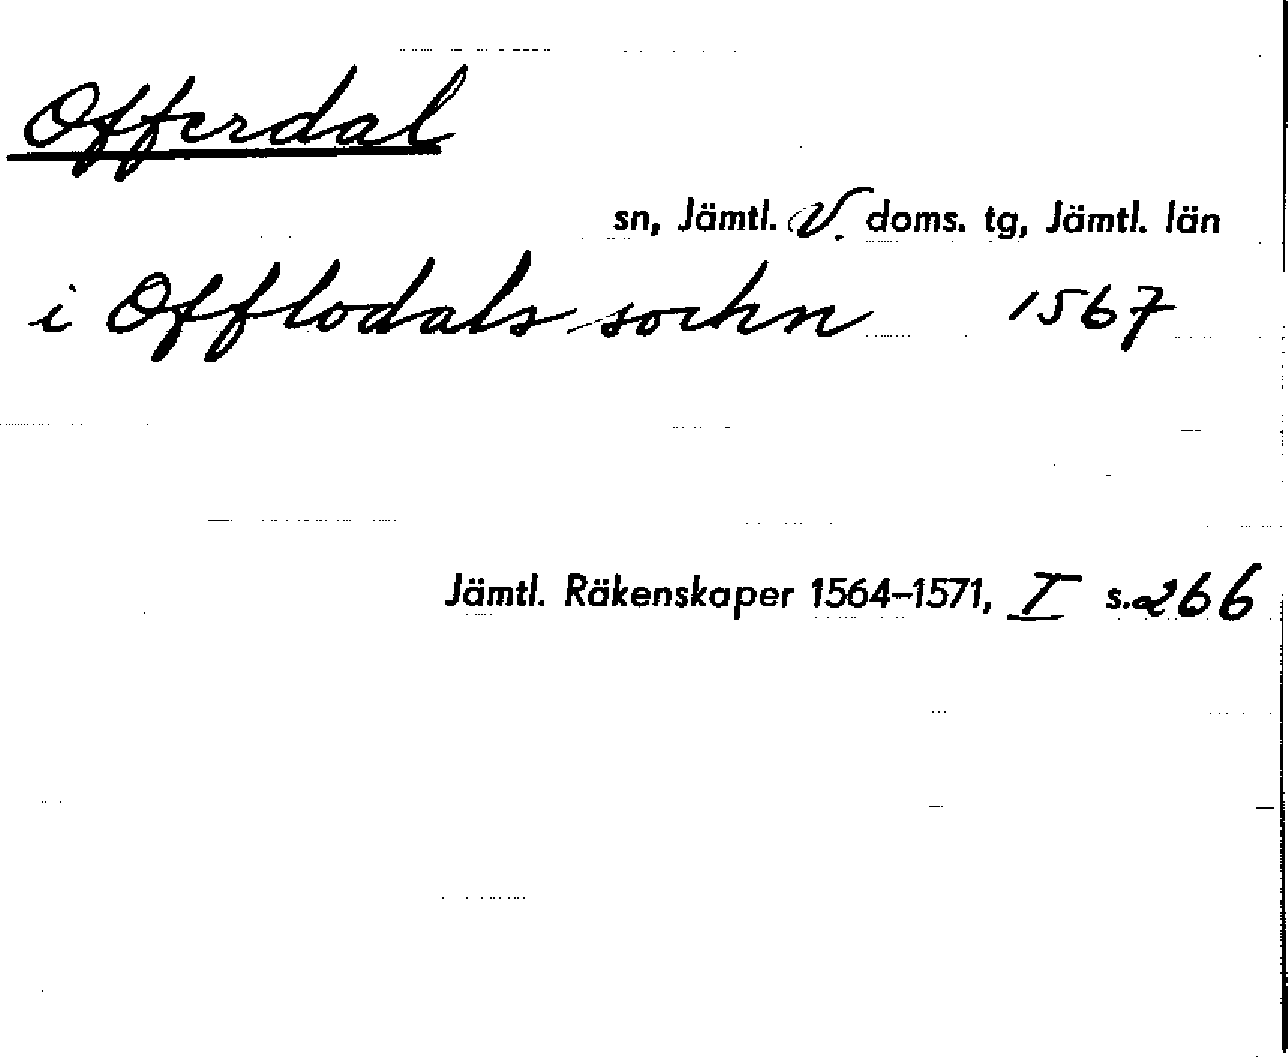 Offerdal
sn, Jämtl. V. doms. tg, Jämtl. län
i Offlodals sochn 1567
Jämtl. Räkenskaper 1564–1571, I s. 266